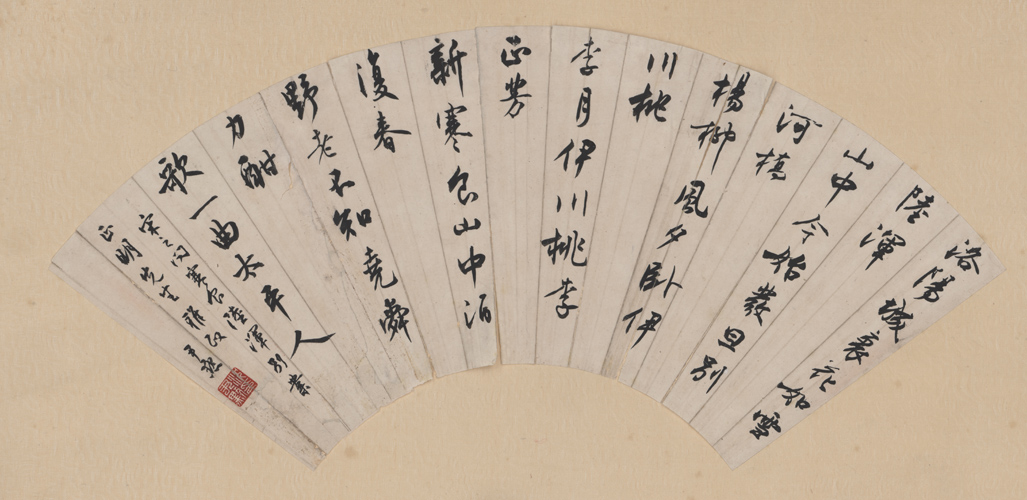 洛陽城裏花如雪
陸渾
山中今始發旦別
河橋
楊柳風夕臥伊
川桃
李月伊川桃李
正芳
新寒食山中酒
復春
野老不知堯舜
力酣
歌一曲太平人
宋之問寒食陸渾別業
正明先生雅政 尹默